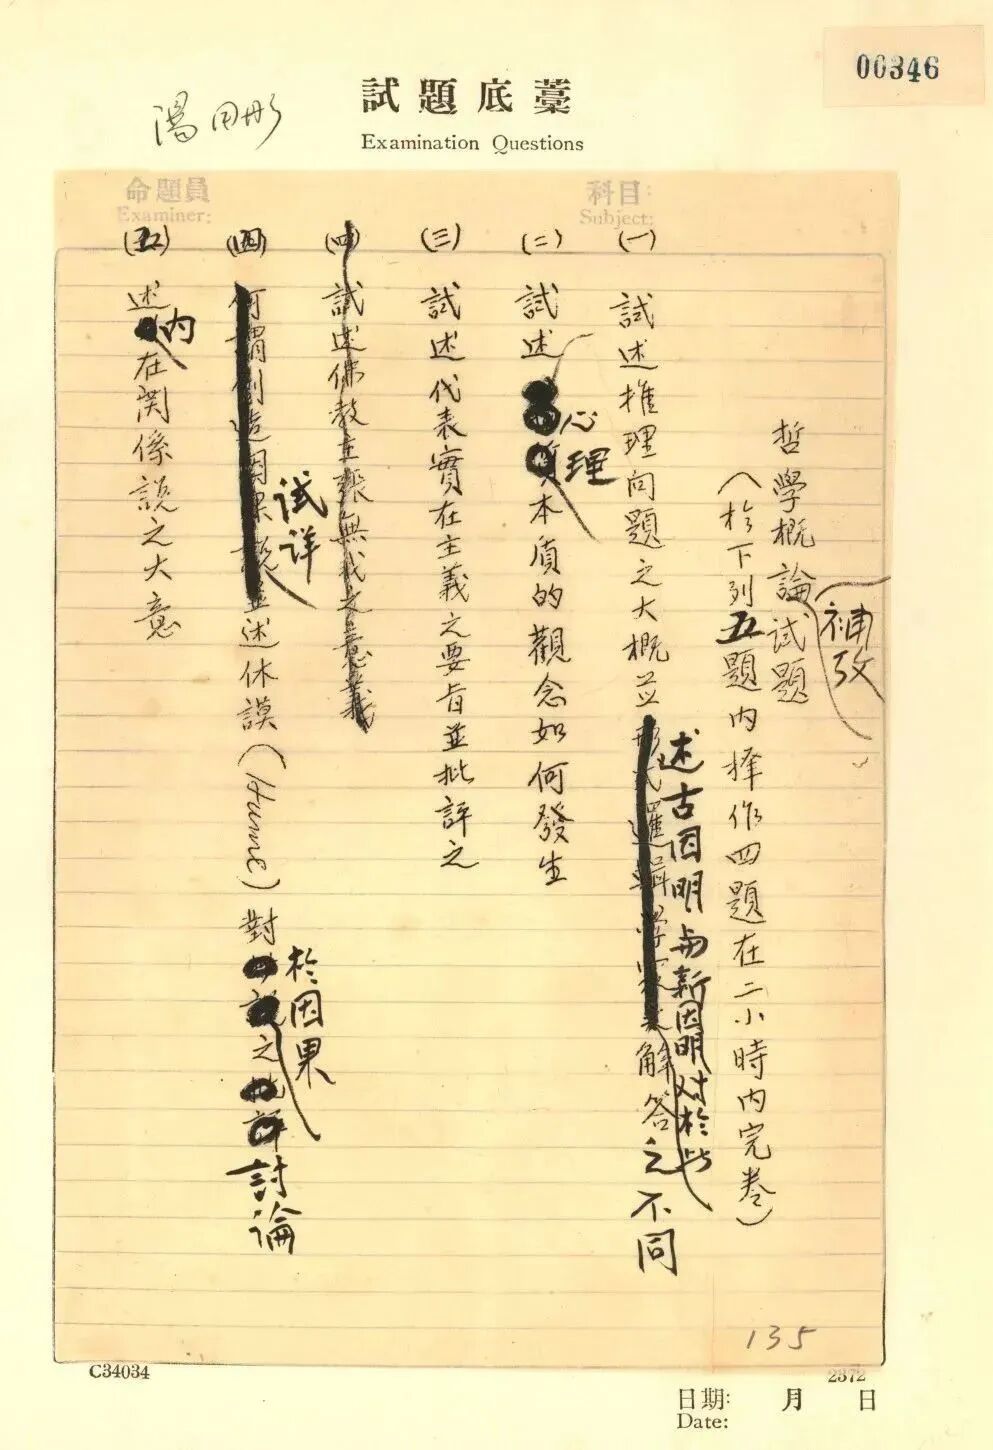 00346
試題底藁
Examination Questions
湯用彤
科目:
Subject:
命題員
Examiner:
哲學概論試題
補攷
(於下列五題內擇作四題在二小時內完卷)
(一) 試述推理问題之大概並述古因明与新因明对於此解答之不同
(二) 試述心理本质的觀念如何發生
(三) 試述代表實在主義之要旨並批評之
(四) 試述佛教主張無我之意義
(四) 試詳述休謨(Hume)對於因果之討論
(五) 述內在関係說之大意
135
C34034
2372
日期: 月 日
Date: